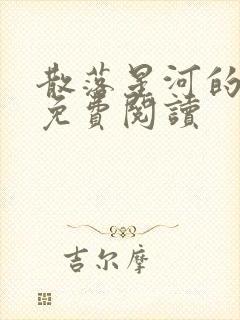 散落星河的
免費閱讀
吉尔摩